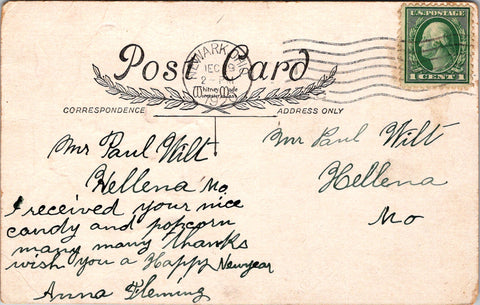 Post Card
NEWARK OHIO
DEC
2
U.S. POSTAGE
1 CENT 1
Whitney Made
CORRESPONDENCE
ADDRESS ONLY
Mr Paul Wilt
Hellena Mo.
I received your nice
candy and popcorn
many many thanks
wish you a Happy Newyear
Anna Fleming
Mr Paul Wilt
Hellena
Mo